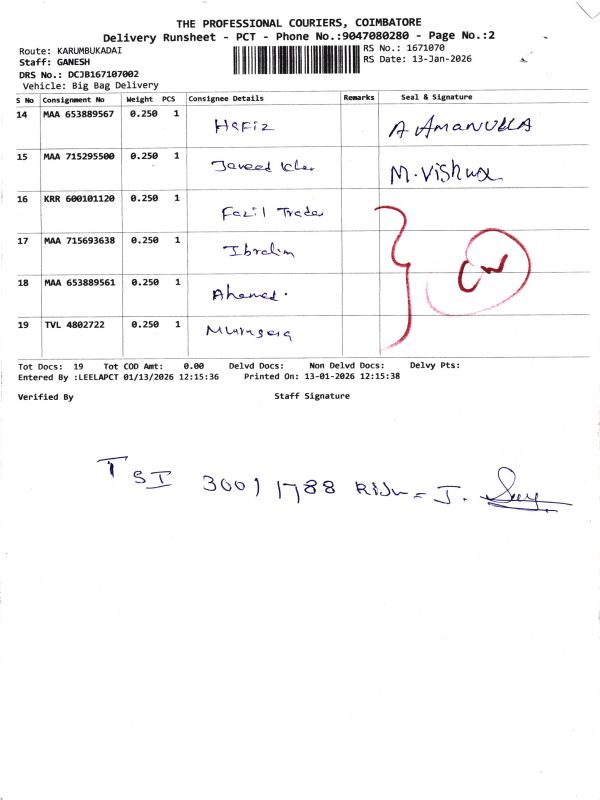 THE PROFESSIONAL COURIERS, COIMBATORE
Delivery Runsheet - PCT - Phone No.:9047080280 - Page No.:2
Route: KARUMBUKADAI
RS No.: 1671070
Staff: GANESH
RS Date: 13-Jan-2026
DRS No.: DCJB167107002
Vehicle: Big Bag Delivery
S No Consignment No Weight PCS Consignee Details Remarks Seal & Signature
14 MAA 653889567 0.250 1 Hafiz A AMANULLA
15 MAA 715295500 0.250 1 Javeed M. Vishwa
16 KRR 600101120 0.250 1 Fazil Trader
17 MAA 715693638 0.250 1 Ibrahim
18 MAA 653889561 0.250 1 Ahamed.
19 TVL 4802722 0.250 1
Tot Docs: 19 Tot COD Amt: 0.00 Delvd Docs: Non Delvd Docs: Delvy Pts:
Entered By :LEELAPCT 01/13/2026 12:15:36 Printed On: 13-01-2026 12:15:38
Verified By Staff Signature
T SI 30011788 J.